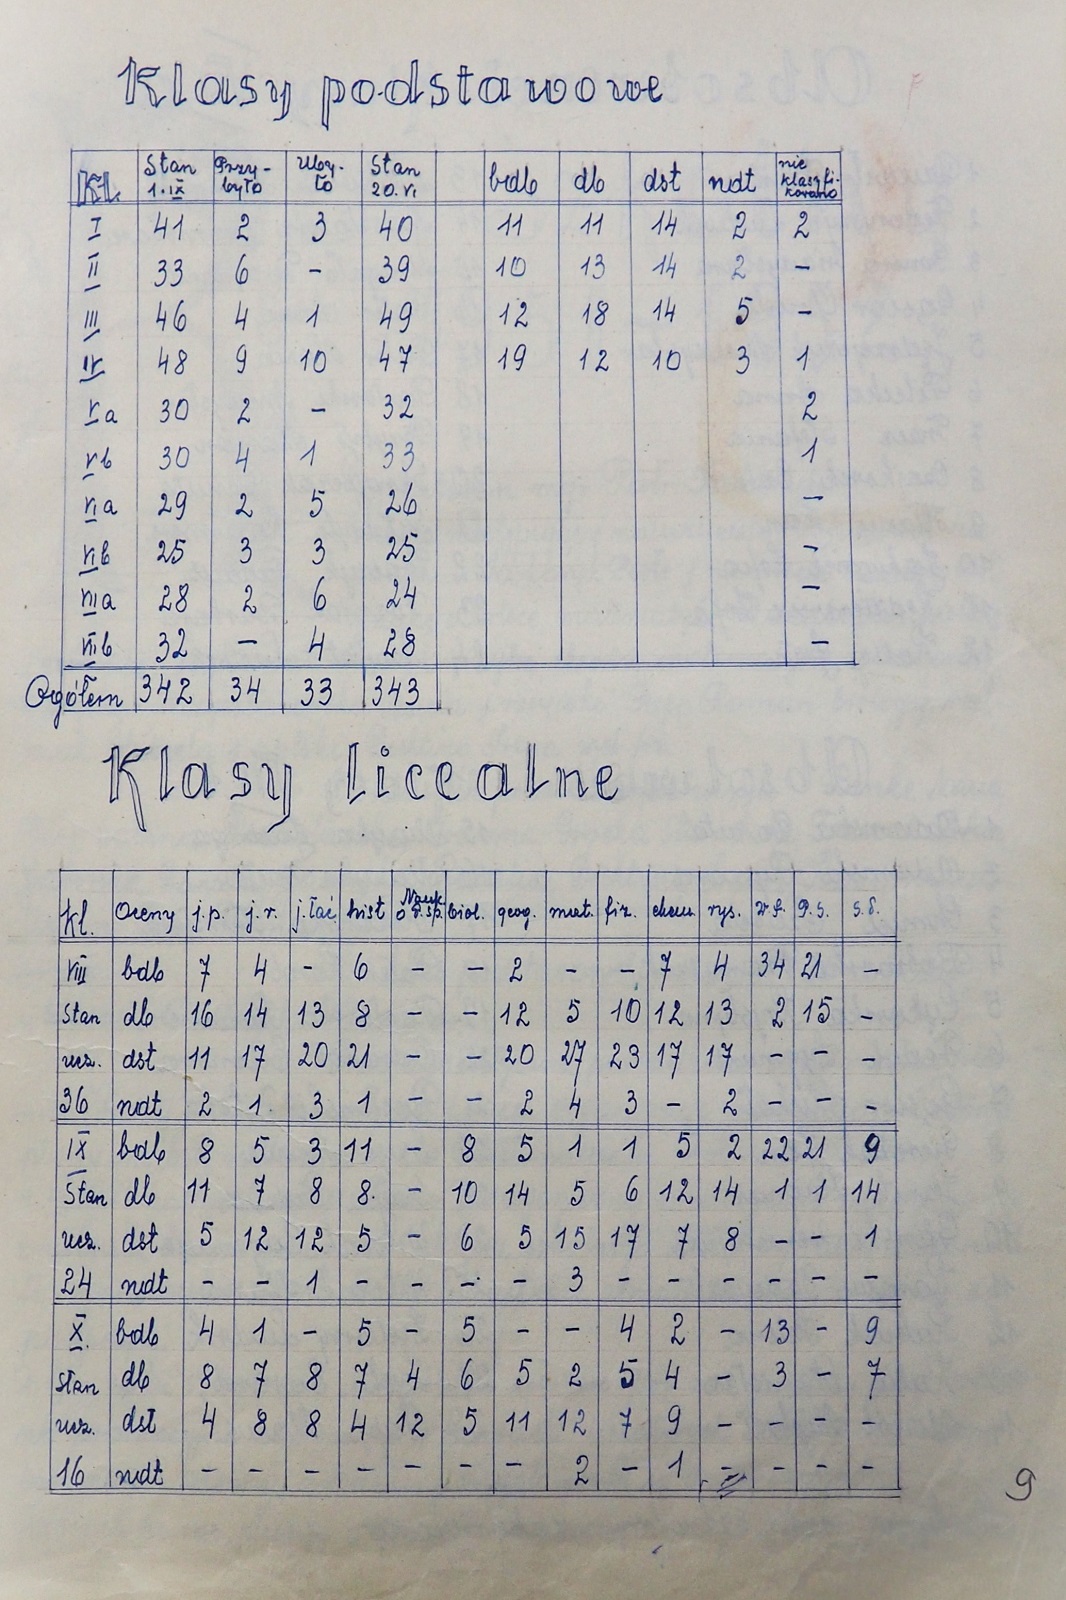 Klasy podstawowe
Kl. Stan 1.IX Przy-było Uby-ło Stan 20.VI bdb db dst ndt nie klasyfi-kowano
I 41 2 3 40 11 11 14 2 2
II 33 6 - 39 10 13 14 2 -
III 46 4 1 49 12 18 14 5 -
IV 48 9 10 47 19 12 10 3 1
Va 30 2 - 32 2
Vb 30 4 1 33 1
VIa 29 2 5 26 -
VIb 25 3 3 25 -
VIIa 28 2 6 24 -
VIIb 32 - 4 28 -
Ogółem 342 34 33 343
Klasy licealne
Kl. Oceny j.p. j.r. j.łać hist Nauk o sp. biol. geog. mat. fiz. chem. rys. w.f. P.S. s.ś.
VIII bdb 7 4 - 6 - - 2 - - 7 4 34 21 -
Stan db 16 14 13 8 - - 12 5 10 12 13 2 15 -
ucz. dst 11 17 20 21 - - 20 27 23 17 17 - - -
36 ndt 2 1. 3 1 - - 2 4 3 - 2 - - -
IX bdb 8 5 3 11 - 8 5 1 1 5 2 22 21 9
Stan db 11 7 8 8. - 10 14 5 6 12 14 1 1 14
ucz. dst 5 12 12 5 - 6 5 15 17 7 8 - - 1
24 ndt - - 1 - - - - 3 - - - - - -
X. bdb 4 1 - 5 - 5 - - 4 2 - 13 - 9
stan db 8 7 8 7 4 6 5 2 5 4 - 3 - 7
ucz. dst 4 8 8 4 12 5 11 12 7 9 - - - -
16 ndt - - - - - - - 2 - 1 - - - -
9